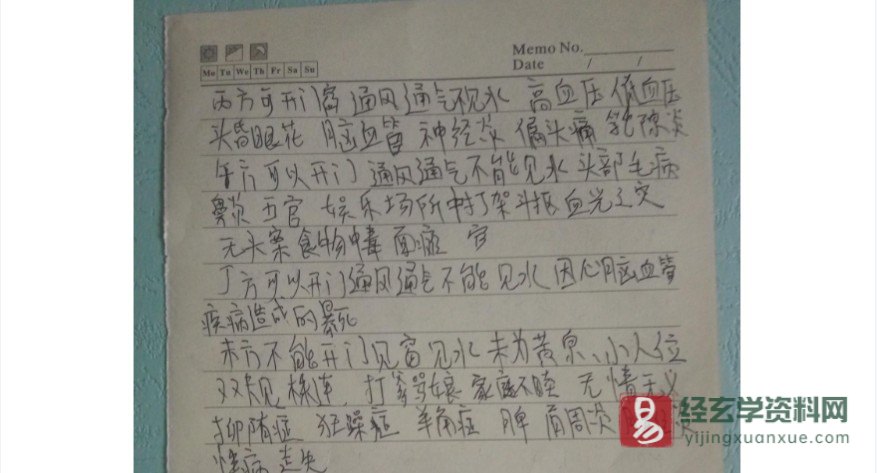 Memo No.
Date / /
Mo Tu We Th Fr Sa Su
丙方可开门窗 通风通气不见水 高血压 低血压
头昏眼花 脑血管 神经炎 偏头痛 乳腺炎
午方可以开门 通风通气不能见水 头部毛病
鼻炎 五官 娱乐场所中打架斗殴 血光之灾
无头案 食物中毒 面瘫 官
丁方可以开门通风通气不能见水 因心脑血管
疾病造成的暴死
未方不能开门见窗见水 未为黄泉、小人位
双规 株连 打爹骂娘 家庭不睦 无情无义
抑郁症 狂躁症 羊角症 脾 肩周炎
怪病 走失
易 经玄学资料网
yijingxuanxue.com